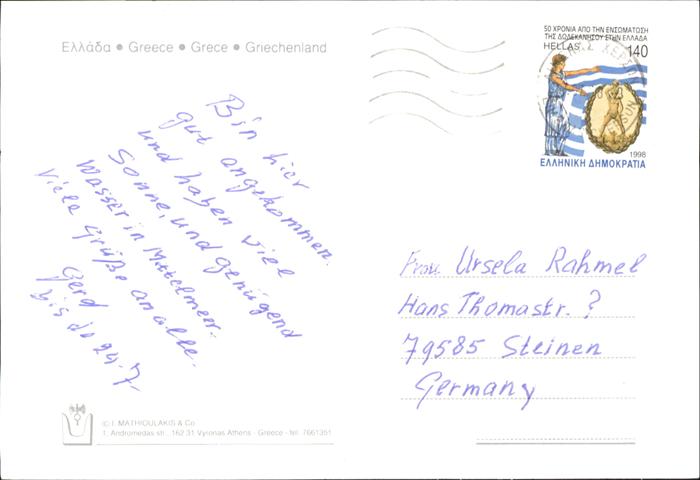 Ελλάδα • Greece • Grece • Griechenland
50 ΧΡΟΝΙΑ ΑΠΟ ΤΗΝ ΕΝΣΩΜΑΤΩΣΗ
ΤΗΣ ΔΩΔΕΚΑΝΗΣΟΥ ΣΤΗΝ ΕΛΛΑΔΑ
HELLAS 140
1998
ΕΛΛΗΝΙΚΗ ΔΗΜΟΚΡΑΤΙΑ
Bin hier
gut angekommen.
und haben viel
Sonne, und genügend
Wasser in Mittelmeer.
Viele Grüße an alle.
Gerd
bis do 24.7.
Frau Ursela Rahmel
Hans Thomastr. ?
79585 Steinen
Germany
© I. MATHIOULAKIS & Co
1, Andromedas str., 162 31 Vyronas Athens - Greece - tel. 7661351